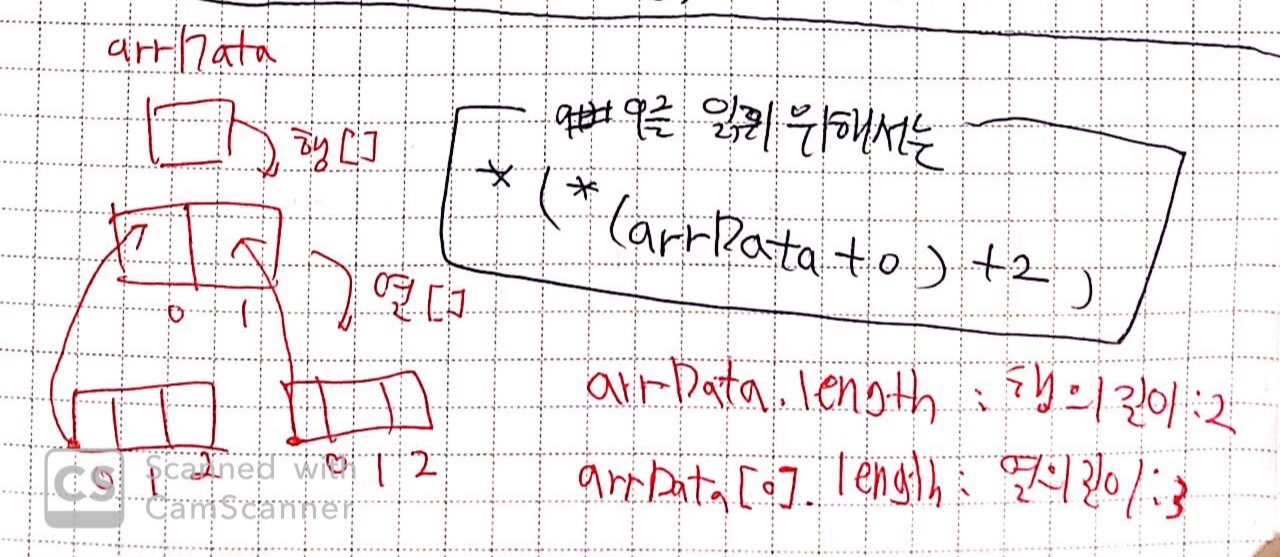 arrData
행[]
0 1
열[]
0 1 2
0 1 2
열을 읽기 위해서는
*(*(arrData+0)+2)
arrData.length : 행의길이:2
arrData[0].length: 열의길이:3
CS Scanned with
CamScanner